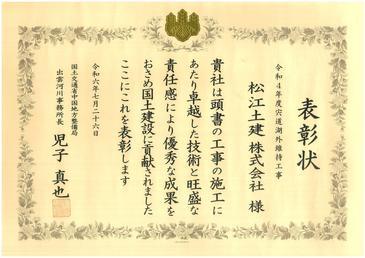 表彰状
令和4年度宍道湖外維持工事
松江土建 株式会社 様
貴社は頭書の工事の施工に
あたり卓越した技術と旺盛な
責任感により優秀な成果を
おさめ国土建設に貢献されました
ここにこれを表彰します
令和六年七月二十六日
国土交通省中国地方整備局
出雲河川事務所長 児子 真也